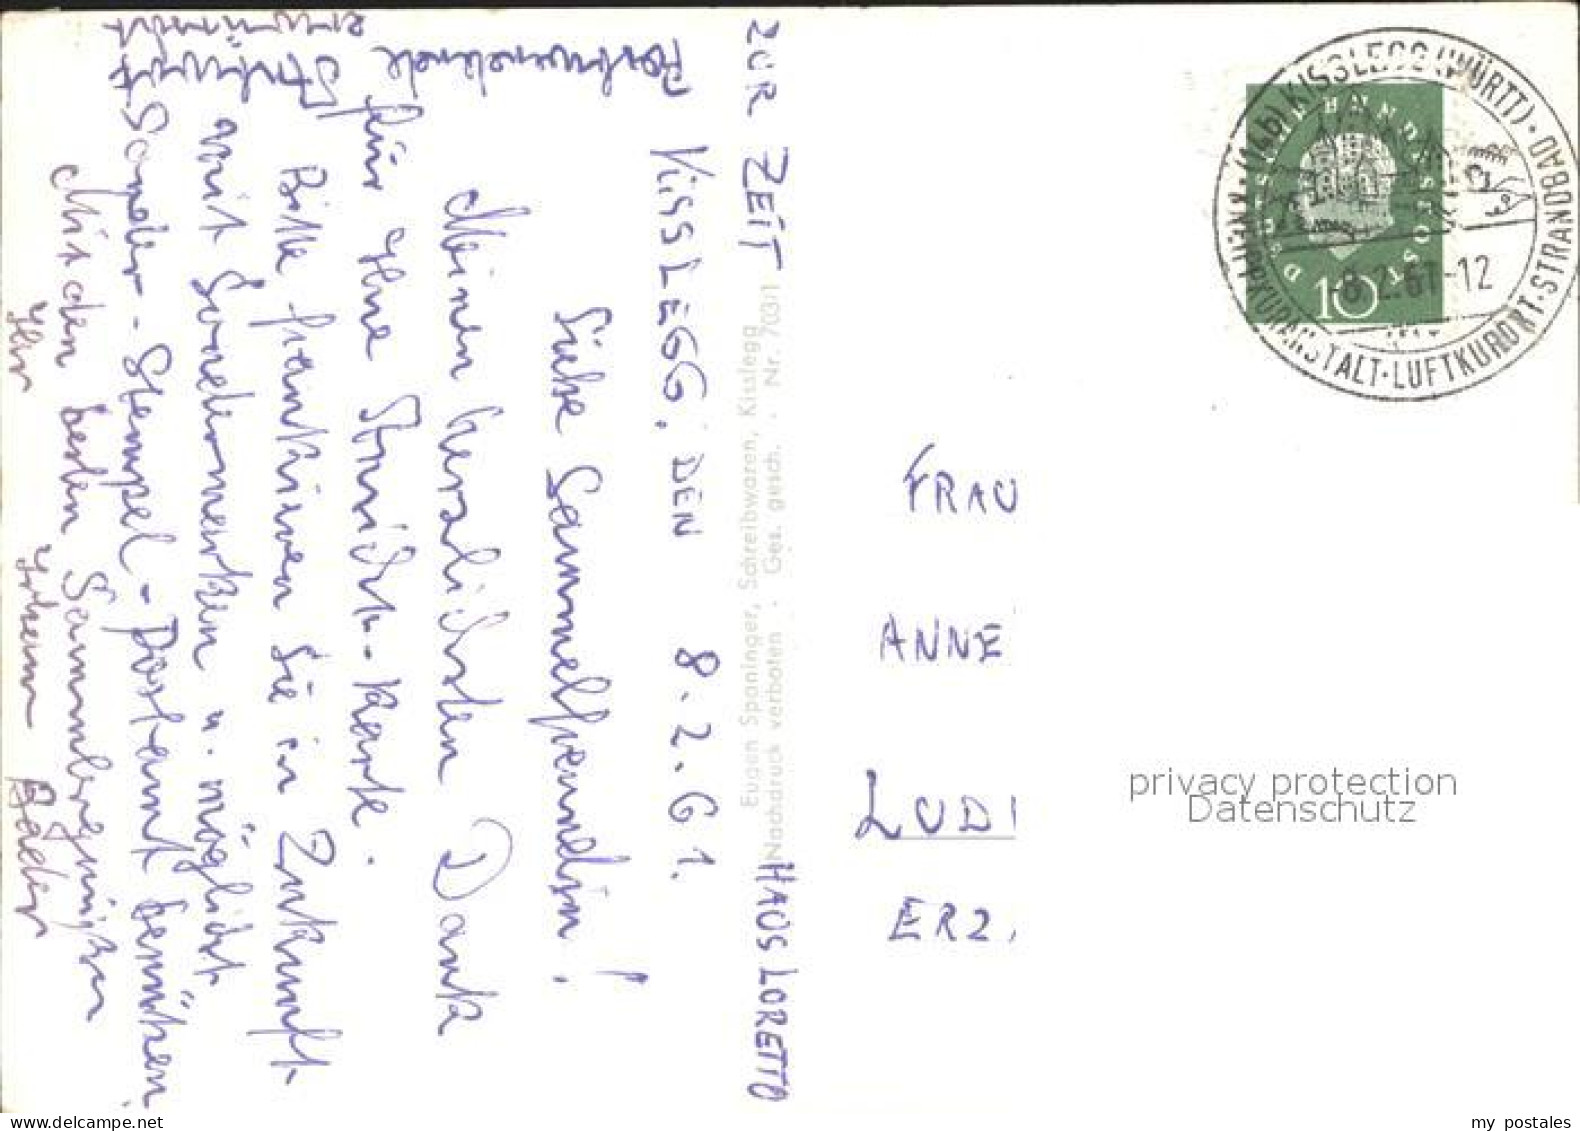 ZUR ZEIT HAUS LORETTO
KISSLEGG, DEN 8.2.61.
Liebe Sammelfreundin!
Meinen herzlichsten Dank
für Ihre Ansicht-Karte.
Bitte frankieren Sie in Zukunft
mit Sondermarken u. möglichst
Sonder-Stempel-Postamt benützen
Mit den besten Sammlergrüßen
Ihr Bader
Eugen Spaninger, Schreibwaren, Kisslegg
Nachdruck verboten . Ges. gesch. . Nr. 703/1
(14b) KISSLEGG (WÜRTT)
KNEIPPKURANSTALT · LUFTKURORT · STRANDBAD
-8.2.61-12
DEUTSCHE BUNDESPOST
10
FRAU
ANNE
LUDI
ERZ
privacy protection
Datenschutz
www.mypostcard-online.com
my postales